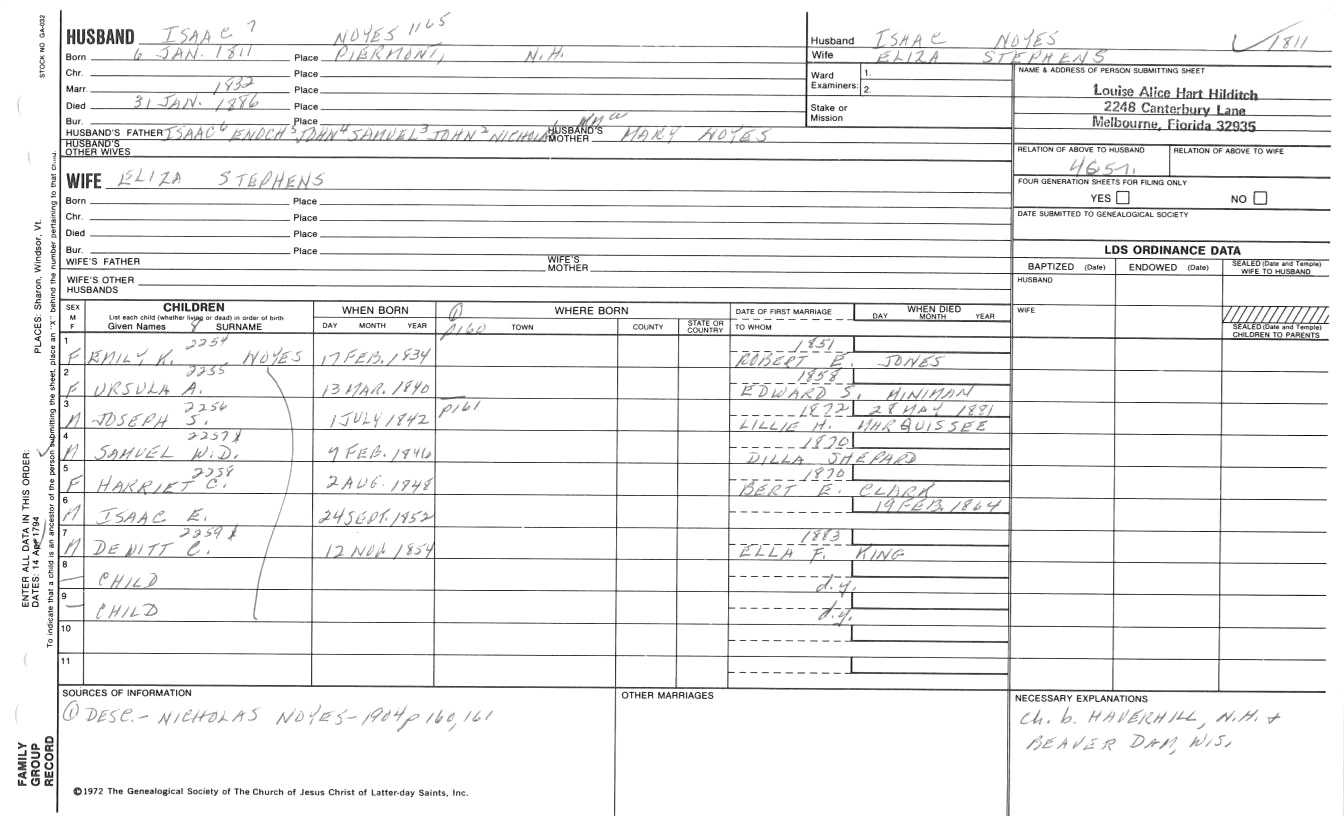 STOCK NO. GA-032
HUSBAND ISAAC 7 NOYES 1165
Born 6 JAN. 1811 Place PIERMONT, N.H.
Chr. Place
Marr. 1832 Place
Died 31 JAN. 1886 Place
Bur. Place
HUSBAND'S FATHER ISAAC6 ENOCH5 JOHN4 SAMUEL3 JOHN2 NICHOLAS HUSBAND'S MOTHER MARY NOYES
HUSBAND'S OTHER WIVES
Husband ISAAC NOYES 1811
Wife ELIZA STEPHENS
Ward Examiners: 1. 2.
Stake or Mission
NAME & ADDRESS OF PERSON SUBMITTING SHEET
Louise Alice Hart Hilditch
2248 Canterbury Lane
Melbourne, Florida 32935
RELATION OF ABOVE TO HUSBAND RELATION OF ABOVE TO WIFE
FOUR GENERATION SHEETS FOR FILING ONLY
YES NO
DATE SUBMITTED TO GENEALOGICAL SOCIETY
WIFE ELIZA STEPHENS
Born Place
Chr. Place
Died Place
Bur. Place
WIFE'S FATHER WIFE'S MOTHER
WIFE'S OTHER HUSBANDS
LDS ORDINANCE DATA
BAPTIZED (Date) ENDOWED (Date) SEALED (Date and Temple) WIFE TO HUSBAND
HUSBAND
WIFE
SEALED (Date and Temple) CHILDREN TO PARENTS
SEX M F
CHILDREN
List each child (whether living or dead) in order of birth
Given Names 8 SURNAME
WHEN BORN
DAY MONTH YEAR
① p160
WHERE BORN
TOWN COUNTY STATE OR COUNTRY
DATE OF FIRST MARRIAGE
TO WHOM
WHEN DIED
DAY MONTH YEAR
1 2254 1851
F EMILY K. NOYES 17 FEB. 1834 ROBERT E. JONES
2 2255 1858
F URSULA A. 13 MAR. 1840 EDWARD S. MINIMAN
3 2256 p161 1872 28 MAY 1881
M JOSEPH S. 1 JULY 1842 LILLIE H. MARQUISSEE
4 2257 1870
M SAMUEL W.D. 7 FEB. 1846 DILLA SHEPARD
5 2258 1870
F HARRIET C. 2 AUG. 1848 BERT E. CLARK
6 19 FEB. 1864
M ISAAC E. 24 SEPT. 1852
7 2259 1883
M DEWITT C. 12 NOV. 1854 ELLA F. KING
8 CHILD d.y.
9 CHILD d.y.
10
11
SOURCES OF INFORMATION
① DESC. - NICHOLAS NOYES - 1904 p 160, 161
OTHER MARRIAGES
NECESSARY EXPLANATIONS
Ch. b. HAVERHILL, N.H. +
BEAVER DAM, WIS.
©1972 The Genealogical Society of The Church of Jesus Christ of Latter-day Saints, Inc.
FAMILY
GROUP
RECORD
ENTER ALL DATA IN THIS ORDER:
DATES: 14 Apr 1794
PLACES: Sharon, Windsor, Vt.
To indicate that a child is an ancestor of the person submitting the sheet, place an "X" behind the number pertaining to that child.